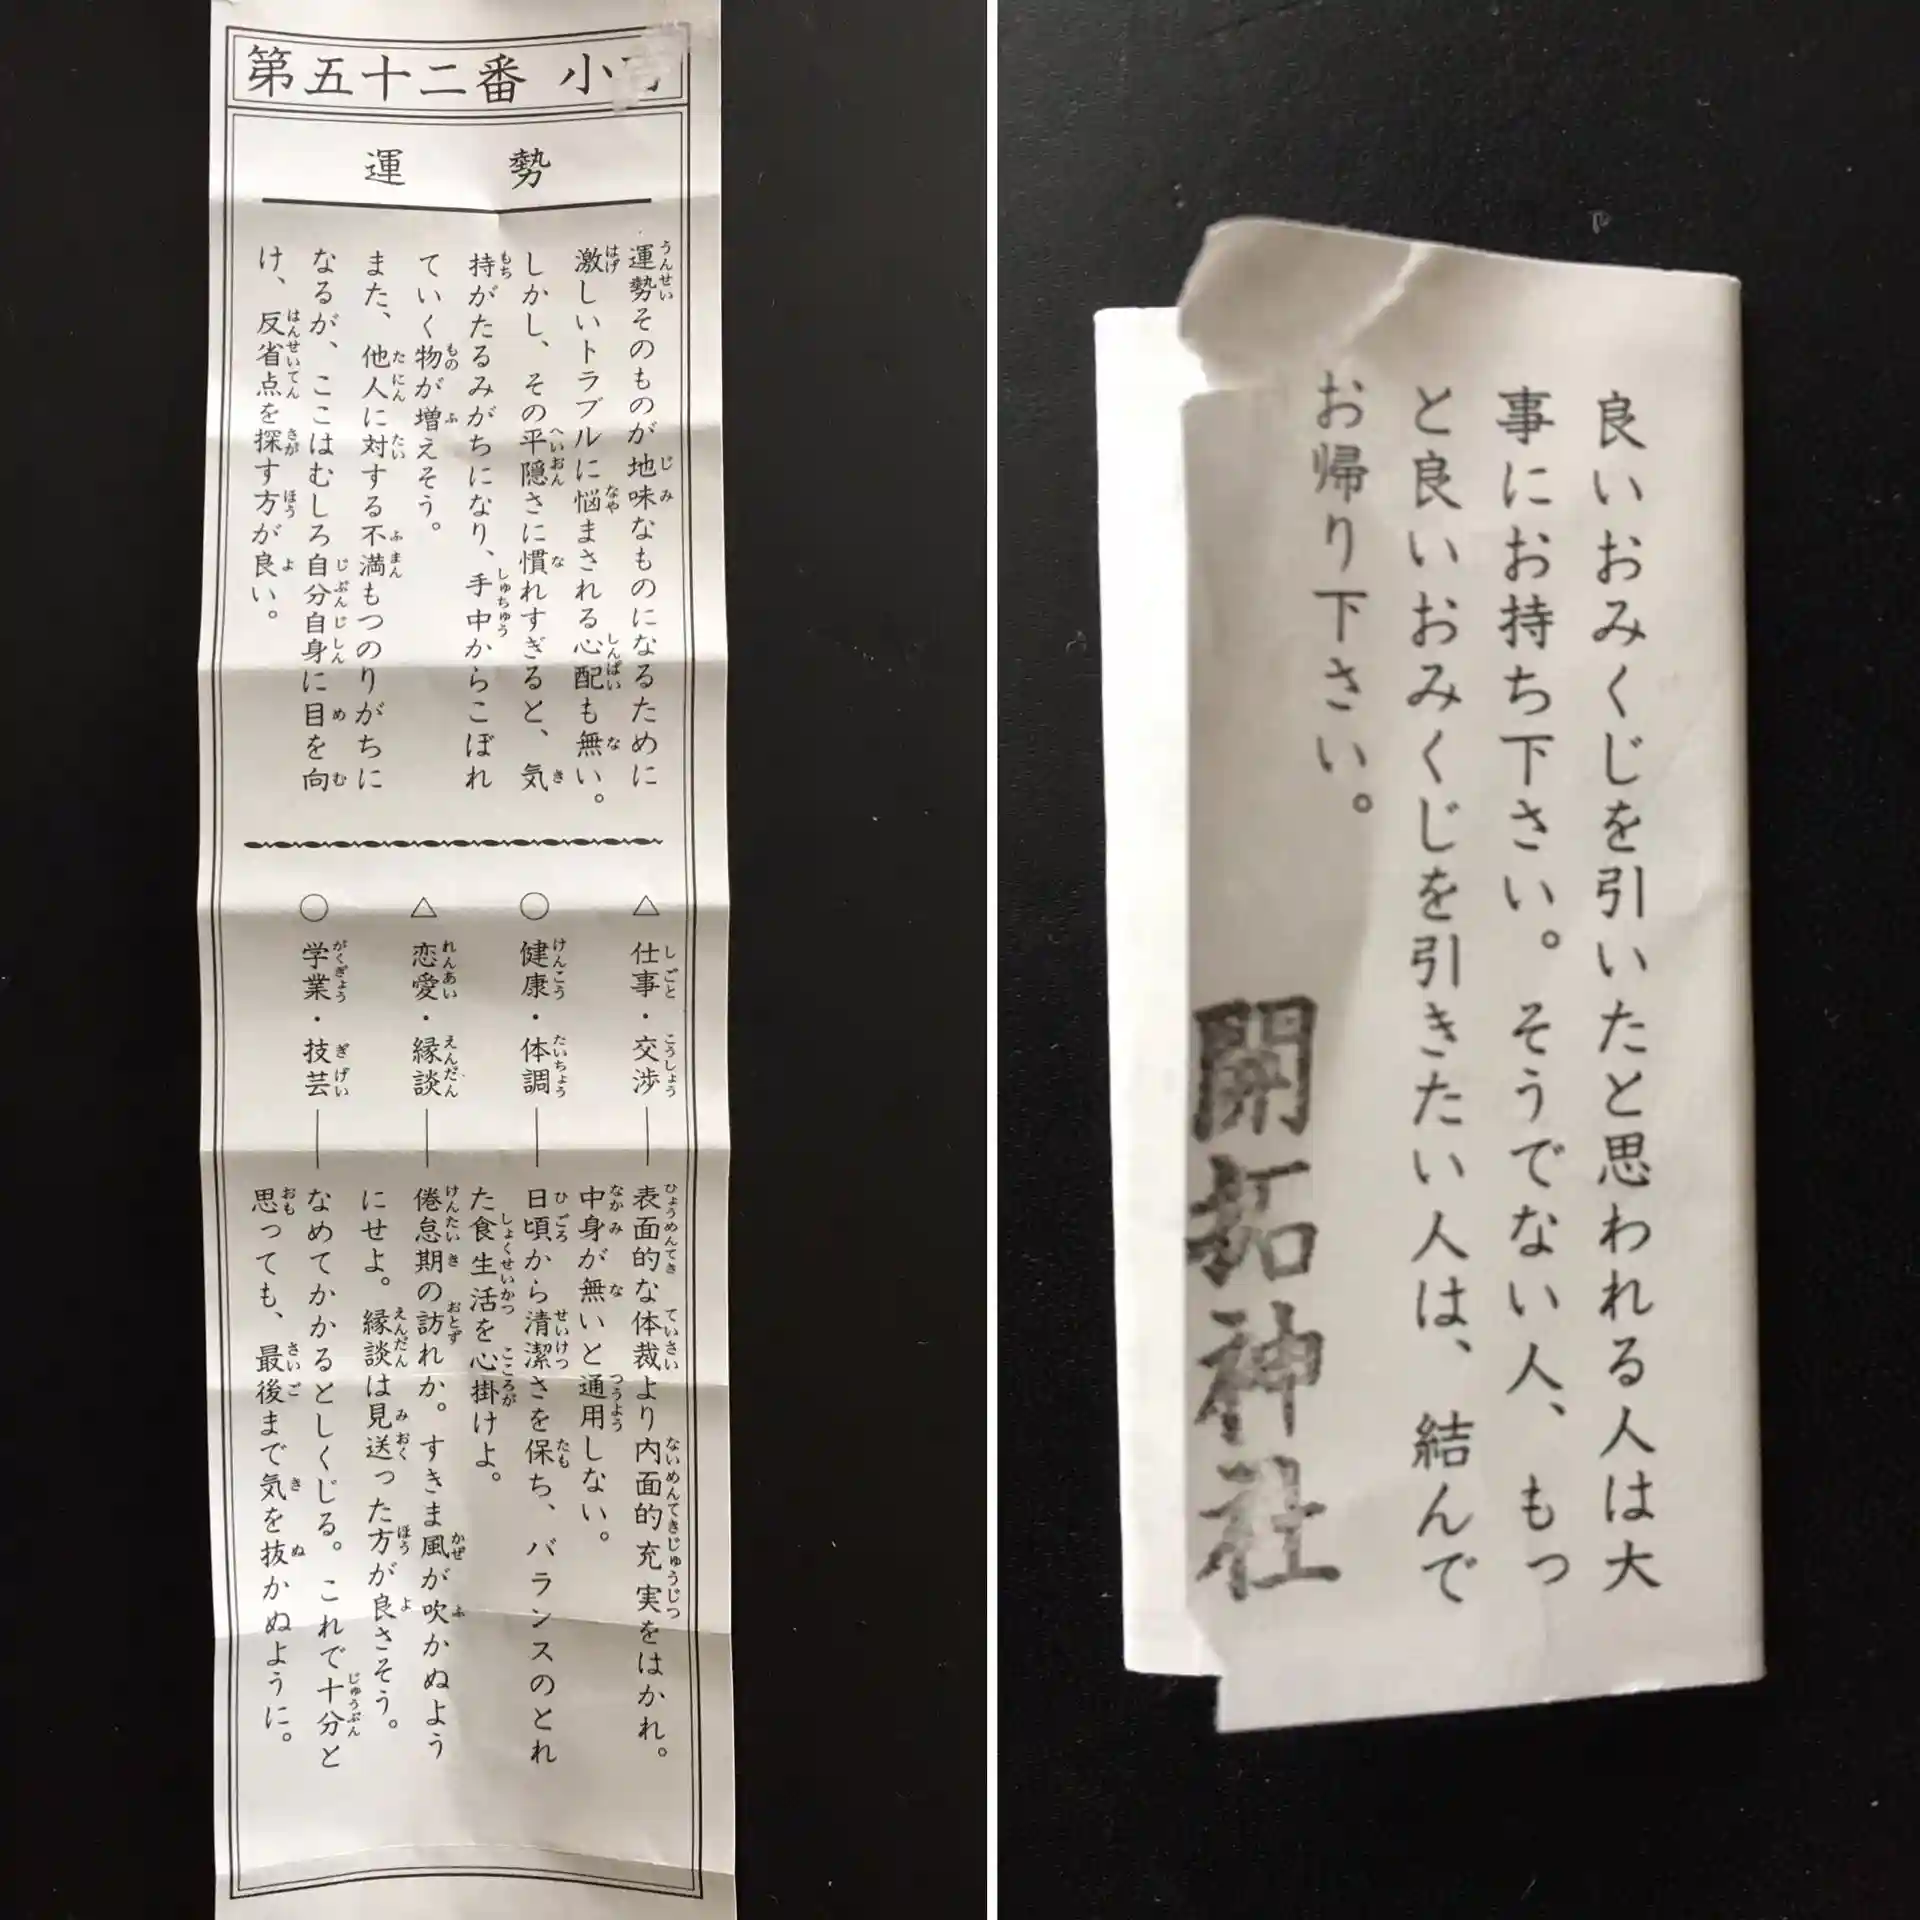 第五十二番 小
運勢
運勢そのものが地味なものになるために
激しいトラブルに悩まされる心配も無い。
しかし、その平隠さに慣れすぎると、気
持がたるみがちになり、手中からこぼれ
ていく物が増えそう。
また、他人に対する不満もつのりがちに
なるが、ここはむしろ自分自身に目を向
け、反省点を探す方が良い。
△仕事・交渉―表面的な体裁より内面的充実をはかれ。
中身が無いと通用しない。
○健康・体調―日頃から清潔さを保ち、バランスのとれ
た食生活を心掛けよ。
△恋愛・縁談―倦怠期の訪れか。すきま風が吹かぬよう
にせよ。縁談は見送った方が良さそう。
○学業・技芸―なめてかかるとしくじる。これで十分と
思っても、最後まで気を抜かぬように。
良いおみくじを引いたと思われる人は大
事にお持ち下さい。そうでない人、もっ
と良いおみくじを引きたい人は、結んで
お帰り下さい。
開拓神社